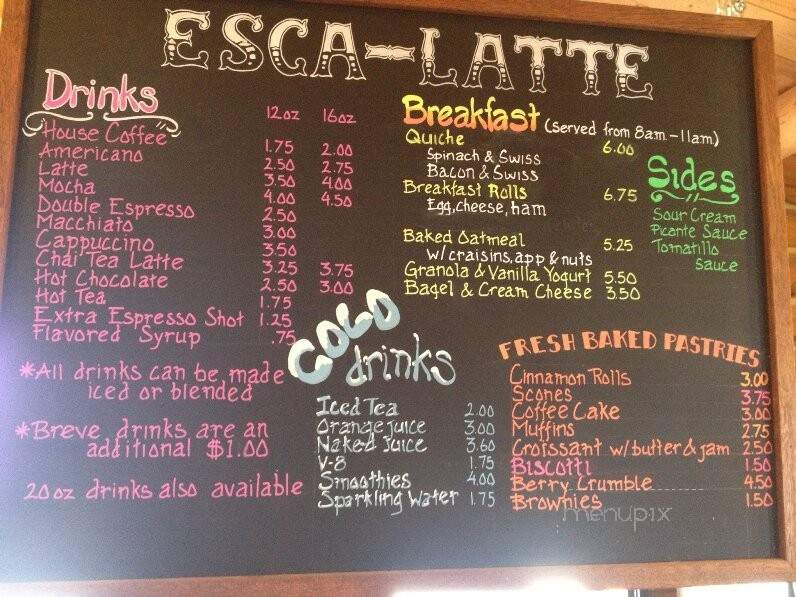 ESCA-LATTE
Drinks
12oz 16oz
House Coffee 1.75 2.00
Americano 2.50 2.75
Latte 3.50 4.00
Mocha 4.00 4.50
Double Espresso 2.50
Macchiato 3.00
Cappuccino 3.50
Chai Tea Latte 3.25 3.75
Hot Chocolate 2.50 3.00
Hot Tea 1.75
Extra Espresso Shot 1.25
Flavored Syrup .75
*All drinks can be made
iced or blended
*Breve drinks are an
additional $1.00
20oz drinks also available
Breakfast (served from 8am-11am)
Quiche 6.00
Spinach & Swiss
Bacon & Swiss
Breakfast Rolls 6.75
Egg, cheese, ham
Baked Oatmeal 5.25
w/craisins, app & nuts
Granola & Vanilla Yogurt 5.50
Bagel & Cream Cheese 3.50
Sides
Sour Cream
Piconte Sauce
Tomatillo
Sauce
COLD
drinks
Iced Tea 2.00
Orange juice 3.00
Naked Juice 3.60
V-8 1.75
Smoothies 4.00
Sparkling Water 1.75
FRESH BAKED PASTRIES
Cinnamon Rolls 3.00
Scones 3.75
Coffee Cake 3.00
Muffins 2.75
Croissant w/butter & jam 2.50
Biscotti 1.50
Berry Crumble 4.50
Brownies 1.50
menupix